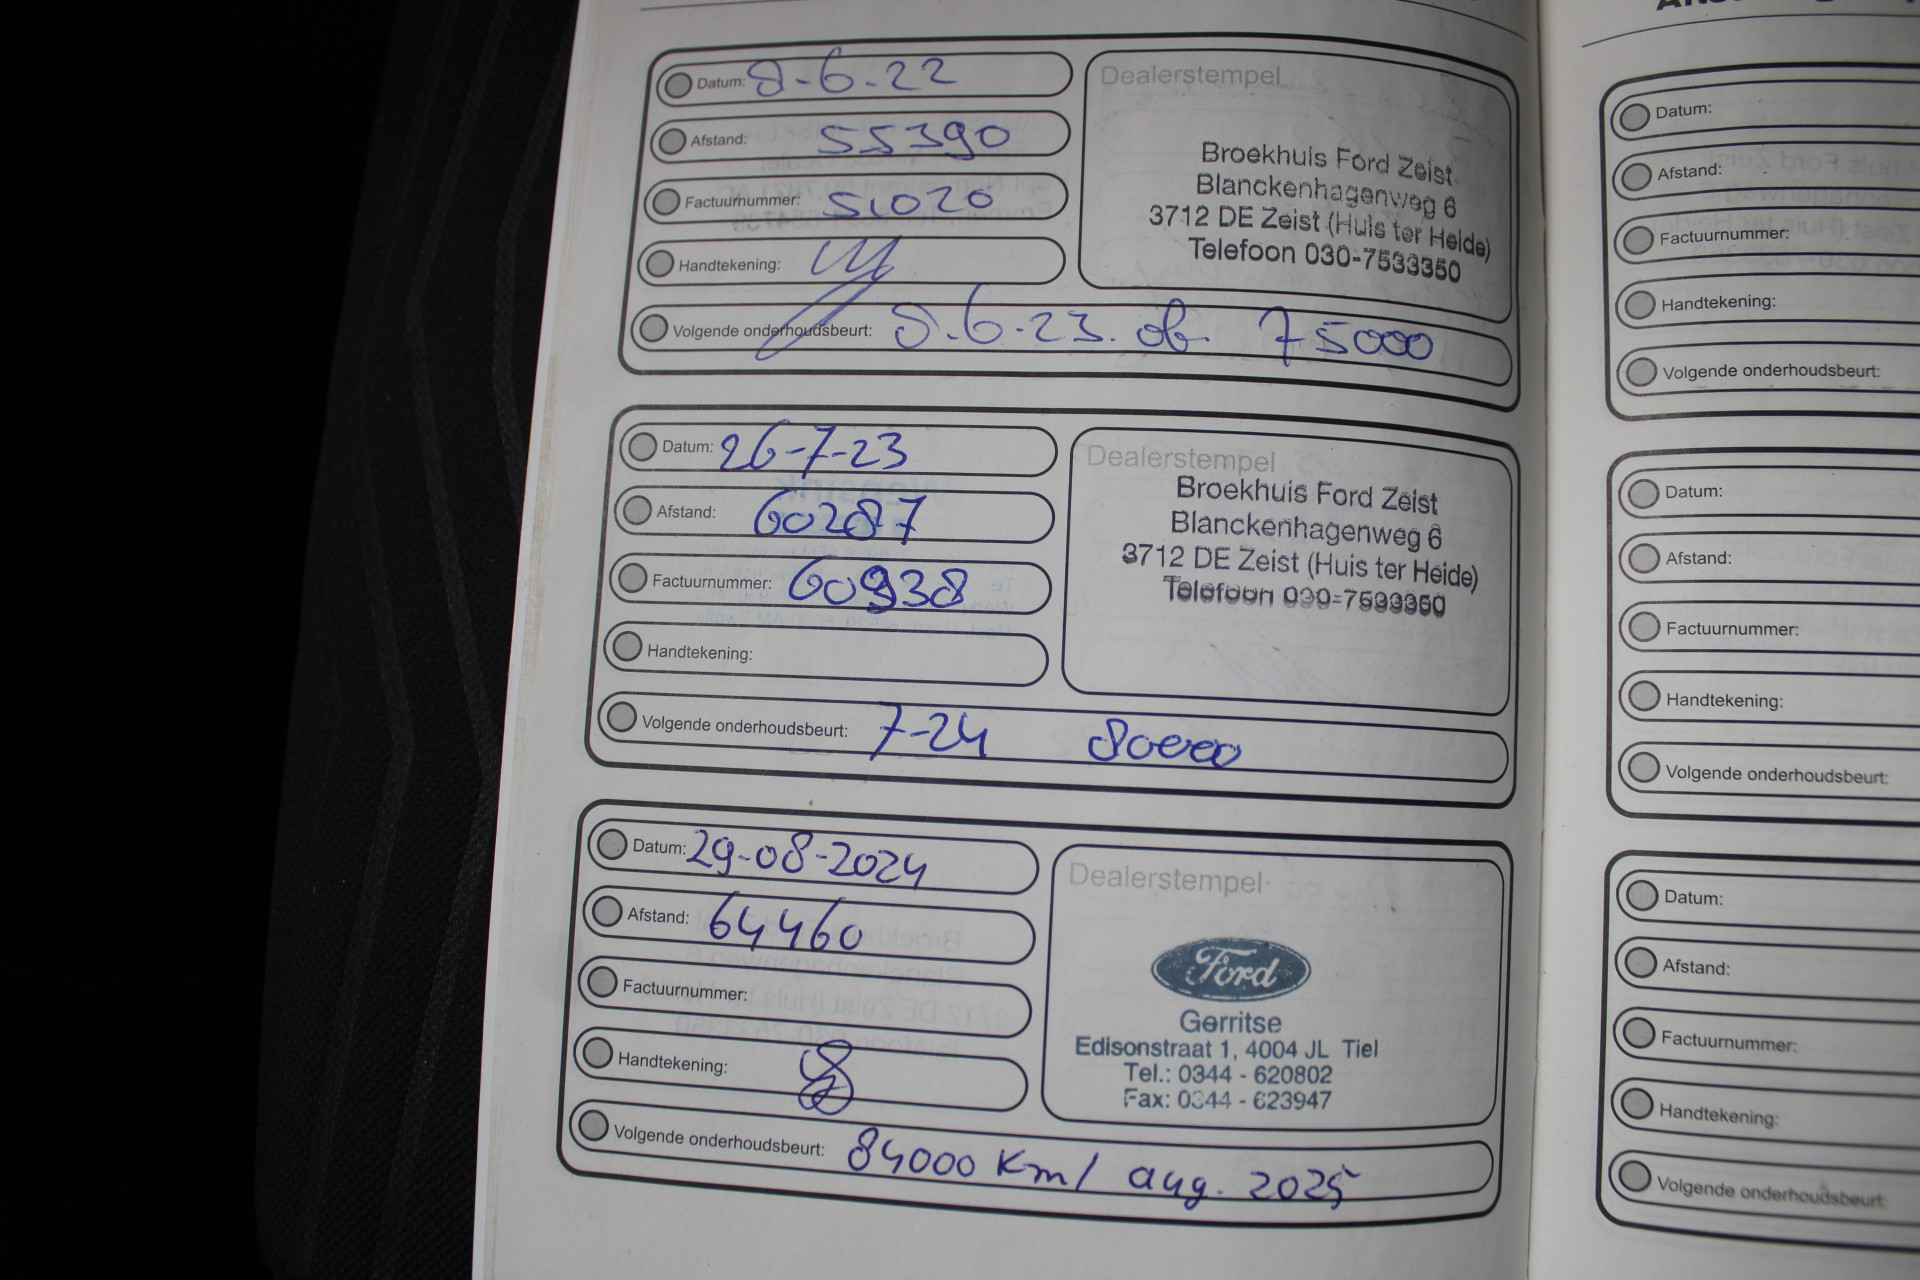 Datum: 8-6-22
Afstand: 55390
Factuurnummer: 51020
Handtekening:
Volgende onderhoudsbeurt: 8.6.23. of. 75000
Dealerstempel
Broekhuis Ford Zeist
Blanckenhagenweg 6
3712 DE Zeist (Huis ter Heide)
Telefoon 030-7533350
Datum: 26-7-23
Afstand: 60287
Factuurnummer: 60938
Handtekening:
Volgende onderhoudsbeurt: 7-24 80000
Dealerstempel
Broekhuis Ford Zeist
Blanckenhagenweg 6
3712 DE Zeist (Huis ter Heide)
Telefoon 030-7533350
Datum: 29-08-2024
Afstand: 64460
Factuurnummer:
Handtekening:
Volgende onderhoudsbeurt: 84000 Km/ aug. 2025
Dealerstempel
Ford
Gerritse
Edisonstraat 1, 4004 JL Tiel
Tel.: 0344 - 620802
Fax: 0344 - 623947
Datum:
Afstand:
Factuurnummer:
Handtekening:
Volgende onderhoudsbeurt:
Datum:
Afstand:
Factuurnummer:
Handtekening:
Volgende onderhoudsbeurt:
Datum:
Afstand:
Factuurnummer:
Handtekening:
Volgende onderhoudsbeurt: